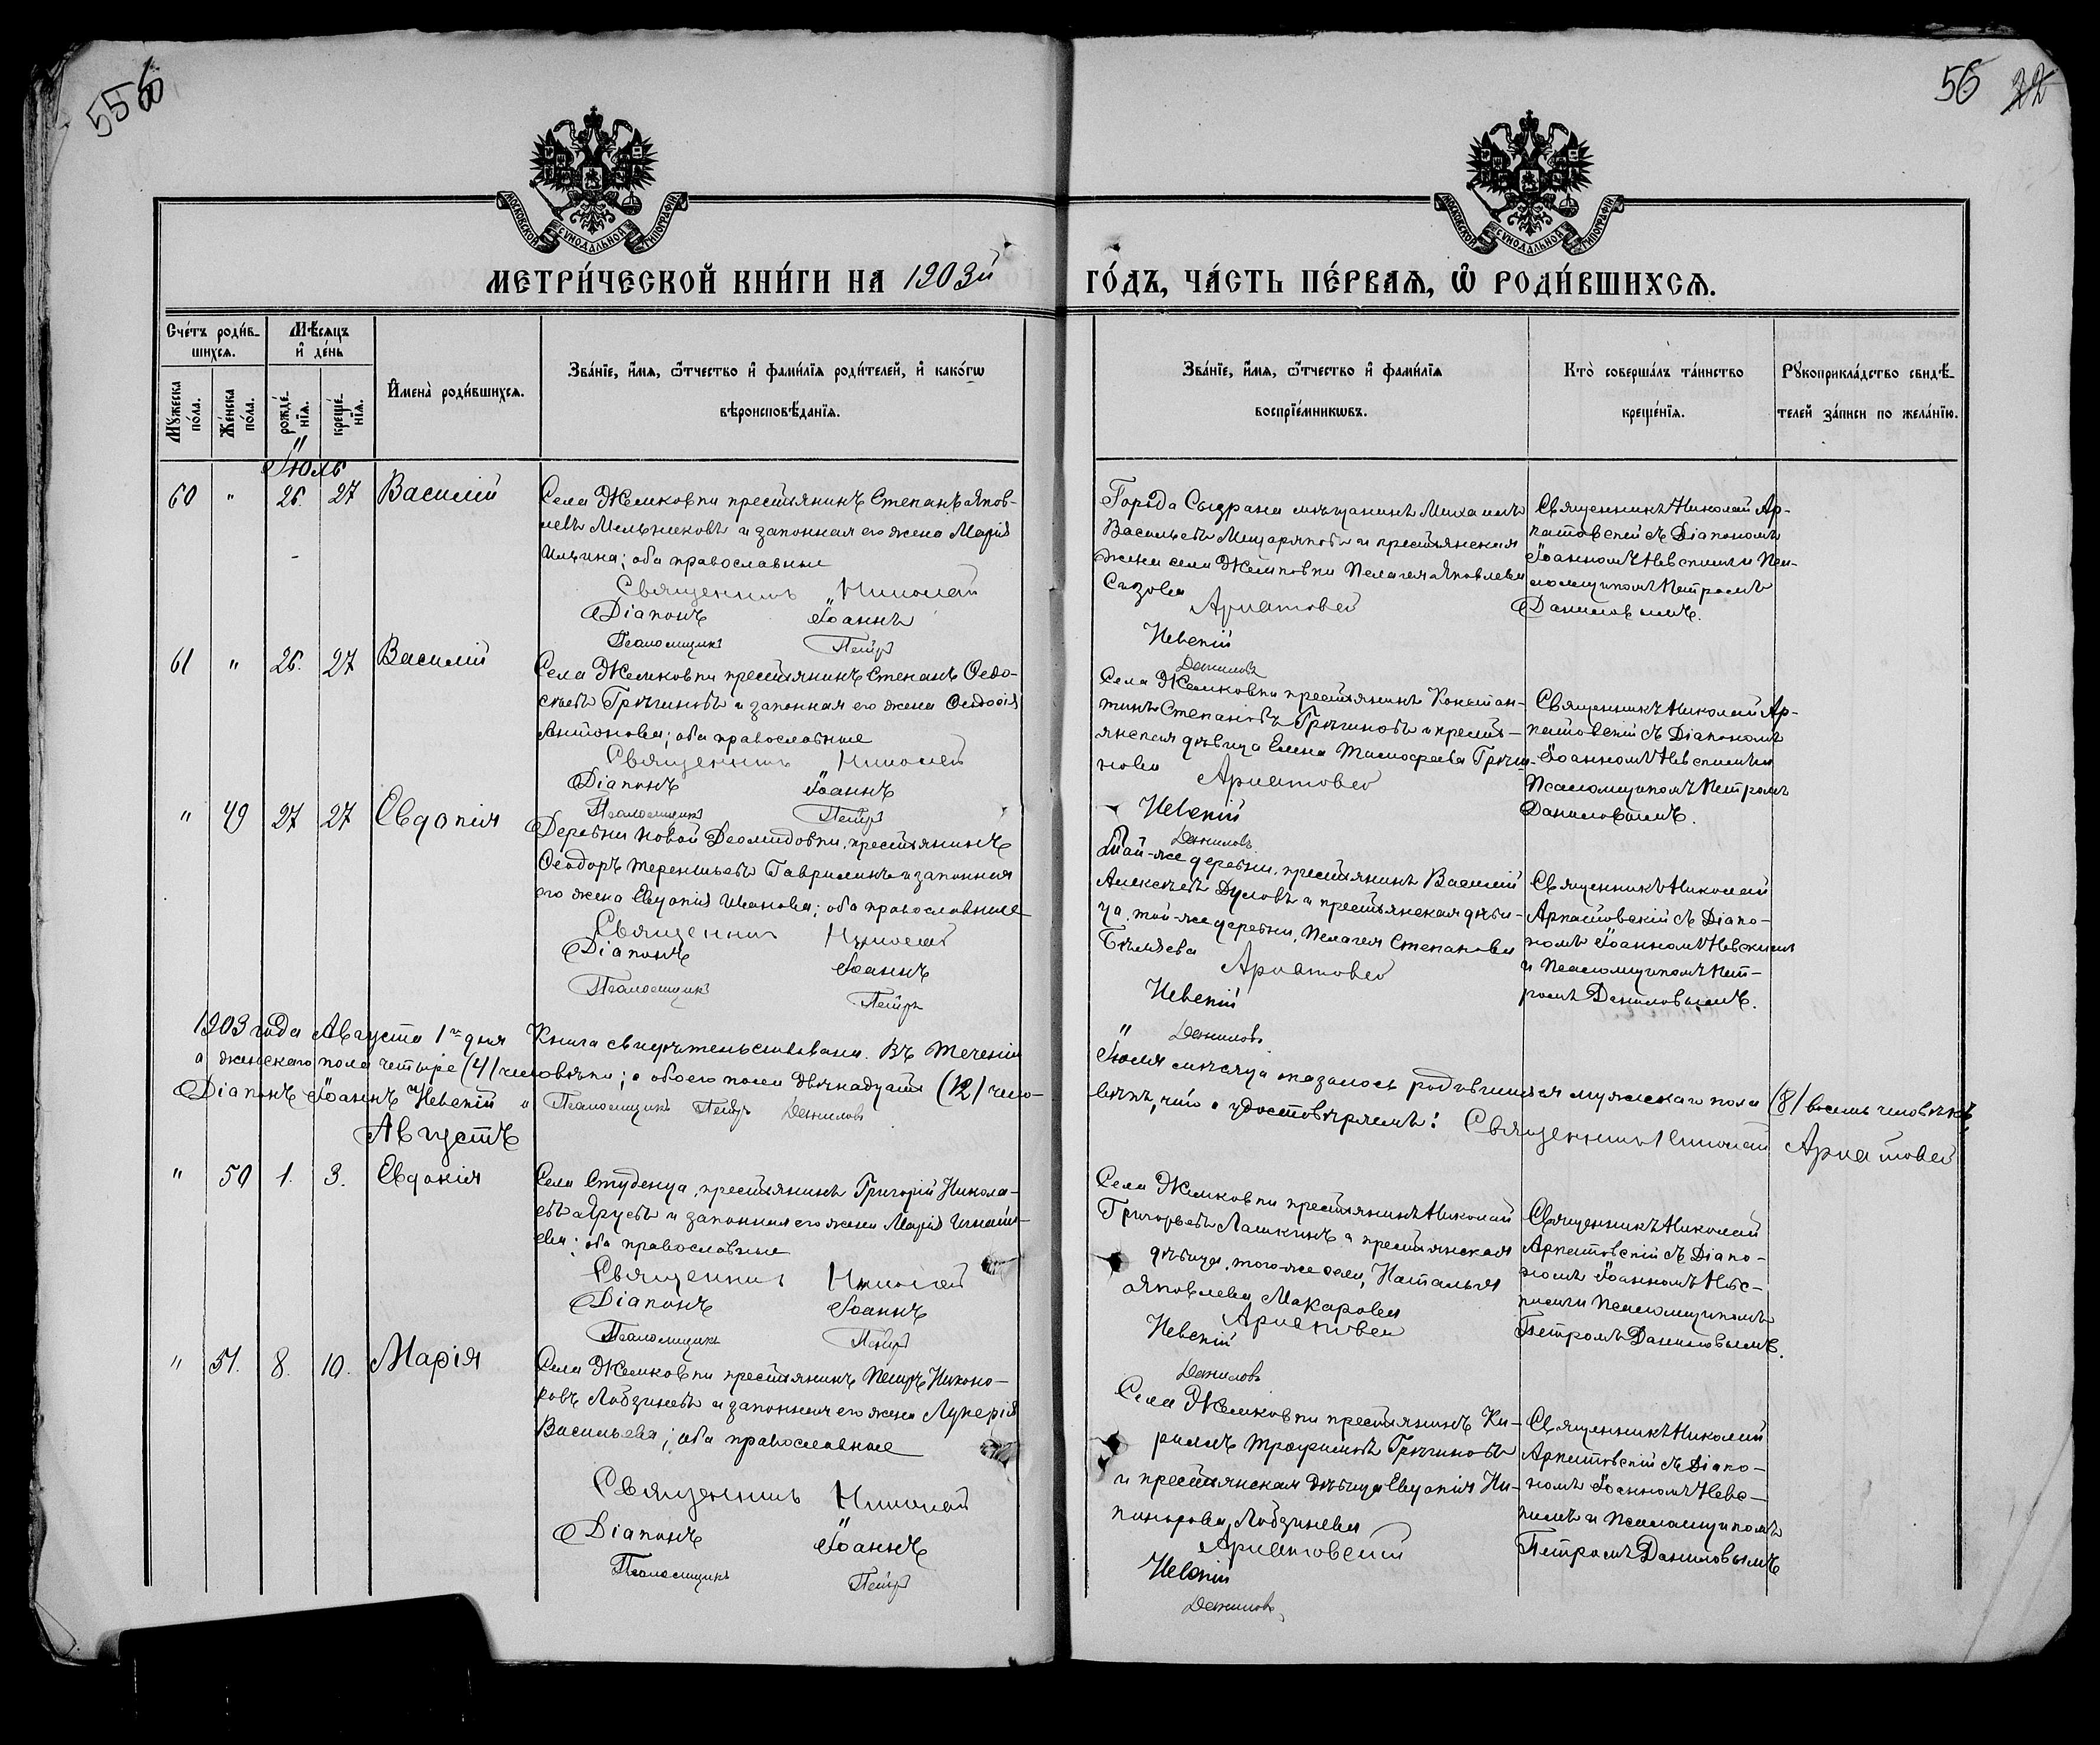 556
56 22
МОСКОВСКОЙ СѴНОДАЛЬНОЙ ТИПОГРАФІИ
МОСКОВСКОЙ СѴНОДАЛЬНОЙ ТИПОГРАФІИ
МЕТРИ́ЧЕСКОЙ КНИ́ГИ НА 1903й ГО́ДЪ, ЧА́СТЬ ПЕ́РВАѦ, Ѡ҆ РОДИ́ВШИХСѦ.
Сче́тъ роди́в-
шихсѧ.
Мꙋ́жеска по́ла.
Же́нска по́ла.
Мѣ́сѧцъ
и҆ де́нь
рожде́-
нїѧ.
креще́-
нїѧ.
И҆мена̀ роди́вшихсѧ.
Зва́нїе, и҆́мѧ, ѻ҆́тчество и҆ фами́лїѧ роди́телей, и҆ како́гѡ
вѣроисповѣ́данїѧ.
Зва́нїе, и҆́мѧ, ѻ҆́тчество и҆ фами́лїѧ
воспрїе́мникѡвъ.
Кто̀ соверша́лъ та́инство
креще́нїѧ.
Рꙋкоприкла́дство свидѣ́-
телей за́писи по жела́нїю.
Іюль
60 " 26. 27 Василій
Села Жемковки крестьянинъ Степанъ Яков-
левъ Мельниковъ и законная его жена Марія
Ильина; оба православные
Священникъ Николай
Діаконъ Іоаннъ
Псаломщикъ Петръ
Города Сызрана мѣщанинъ Михаилъ
Васильевъ Мещаряковъ и крестьянская
жена села Жемковки Пелагея Яковлева
Сизова
Архатовскій
Невскій
Даниловъ
Священникъ Николай Ар-
хатовскій съ Діакономъ
Іоанномъ Невскимъ и Пса-
ломщикомъ Петромъ
Даниловымъ.
61 " 26. 27 Василій
Села Жемковки крестьянинъ Степанъ Ѳедо-
сѣевъ Грѣчиновъ и законная его жена Ѳеодосія
Антонова; оба православные
Священникъ Николай
Діаконъ Іоаннъ
Псаломщикъ Петръ
Села Жемковки крестьянинъ Констан-
тинъ Степановъ Грѣчиновъ и кресть-
янская дѣвица Елена Тимофеева Грѣчи-
нова
Архатовскій
Невскій
Даниловъ
Священникъ Николай Ар-
хатовскій съ Діакономъ
Іоанномъ Невскимъ и
Псаломщикомъ Петромъ
Даниловымъ.
" 49 27 27 Евдокія
Деревни Новой Деомидовки, крестьянинъ
Ѳеодоръ Терентьевъ Гаврилинъ и законная
его жена Евдокія Иванова; оба православные
Священникъ Николай
Діаконъ Іоаннъ
Псаломщикъ Петръ
Той-же деревни, крестьянинъ Василій
Алексѣевъ Дуловъ и крестьянская дѣви-
ца, той-же деревни, Пелагея Степанова
Бѣляева
Архатовскій
Невскій
Даниловъ
Священникъ Николай
Архатовскій съ Діако-
номъ Іоанномъ Невскимъ
и Псаломщикомъ Пет-
ромъ Даниловымъ.
1903 года Августа 1го дня Книга свидѣтельствована. Въ теченіи Іюля мѣсяца оказалось родившимся мужскаго пола (8) восемь человѣкъ,
а женскаго пола четыре (4) человѣка; а обоего пола двѣнадцать (12) чело-
вѣкъ, что и удостовѣряемъ: Священникъ Николай Архатовскій
Діаконъ Іоаннъ Невскій Псаломщикъ Петръ Даниловъ
Августъ
" 50 1. 3. Евдокія
Села Студенца, крестьянинъ Григорій Никола-
евъ и законная его жена Марія Игнать-
ева; оба православные
Священникъ Николай
Діаконъ Іоаннъ
Псаломщикъ Петръ
Села Жемковки крестьянинъ Николай
Григорьевъ Лашкинъ и крестьянская
дѣвица, того-же села, Наталья
Яковлева Макарова
Архатовскій
Невскій
Даниловъ
Священникъ Николай
Архатовскій съ Діако-
номъ Іоанномъ Невс-
кимъ и Псаломщикомъ
Петромъ Даниловымъ.
" 51. 8. 10. Марія
Села Жемковки крестьянинъ Петръ Никоно-
ровъ Лобзиневъ и законная его жена Лукерія
Васильева; оба православные
Священникъ Николай
Діаконъ Іоаннъ
Псаломщикъ Петръ
Села Жемковки крестьянинъ Ки-
риллъ Трофимовъ Грѣчиновъ
и крестьянская дѣвица Евдокія Ни-
канорова, Лобзинева
Архатовскій
Невскій
Даниловъ
Священникъ Николай
Архатовскій съ Діако-
номъ Іоанномъ Невс-
кимъ и Псаломщикомъ
Петромъ Даниловымъ